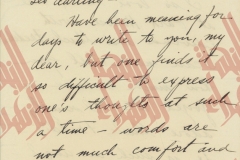 darling
Have been meaning for
days to write to you, my
dear, but one finds it
so difficult to express
one's thoughts at such
a time - words are
not much comfort and